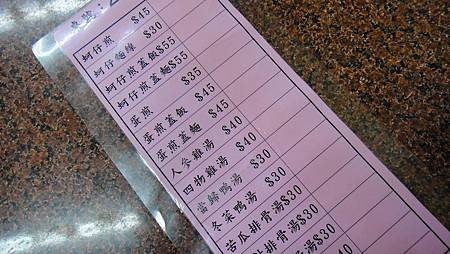 桌號:
蚵仔煎 $45
蚵仔麵線 $30
蚵仔煎蓋飯$55
蚵仔煎蓋麵$55
蛋煎 $35
蛋煎蓋飯 $45
蛋煎蓋麵 $45
人參雞湯 $40
四物雞湯 $40
當歸鴨湯 $30
冬菜鴨湯 $30
苦瓜排骨湯$30
排骨湯$30
$30